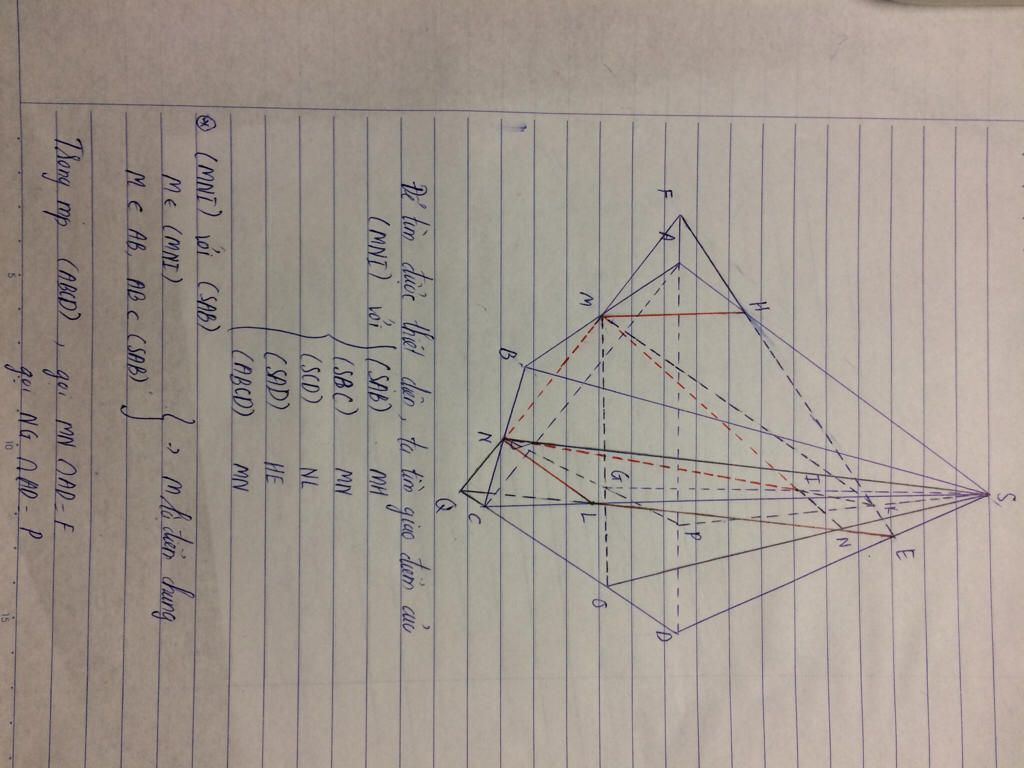 S
E
N
K
I
H
P
D
A
F
G
O
M
L
B
N
C
Q
Để tìm được thiết diện, ta tìm giao tuyến của
(MNI) với (SAB) MH
(SBC) MN
(SCD) NL
(SAD) HE
(ABCD) MN
(MNI) với (SAB)
M ∈ (MNI)
M ∈ AB, AB ⊂ (SAB) } → M là điểm chung
Trong mp (ABCD), gọi MN ∩ AD = F
gọi NG ∩ AD = P
5
10
15